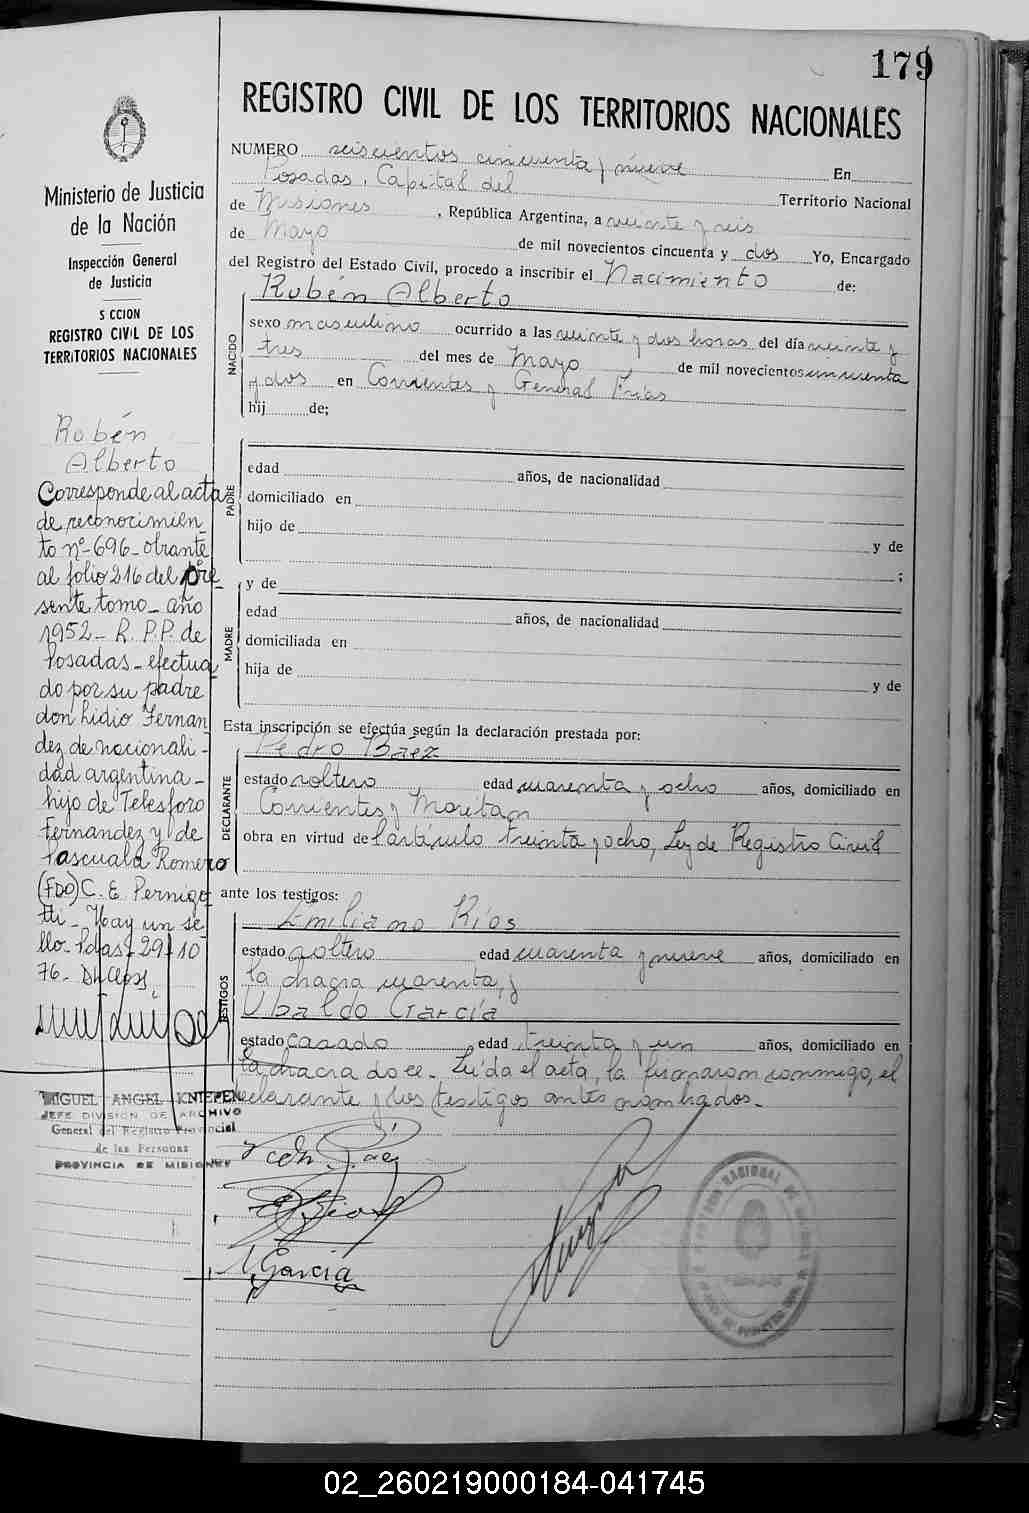 179
REGISTRO CIVIL DE LOS TERRITORIOS NACIONALES
Ministerio de Justicia
de la Nación
Inspección General
de Justicia
S CCION
REGISTRO CIVIL DE LOS
TERRITORIOS NACIONALES
NUMERO seiscientos cincuenta y nueve En
Posadas, Capital del Territorio Nacional
de Misiones, República Argentina, a veinte y seis
de Mayo de mil novecientos cincuenta y dos Yo, Encargado
del Registro del Estado Civil, procedo a inscribir el Nacimiento de:
Rubén Alberto
NACIDO
sexo masculino ocurrido a las veinte y dos horas del día veinte y
tres del mes de Mayo de mil novecientos cincuenta
y dos en Corrientes y General Frías
hij de;
PADRE
edad años, de nacionalidad
domiciliado en
hijo de
y de
;
y de
MADRE
edad años, de nacionalidad
domiciliada en
hija de
y de
Esta inscripción se efectúa según la declaración prestada por:
Pedro Baez
DECLARANTE
estado soltero edad cuarenta y ocho años, domiciliado en
Corrientes y
obra en virtud del artículo treinta y ocho, Ley de Registro Civil
ante los testigos:
Emiliano Ríos
TESTIGOS
estado soltero edad cuarenta y nueve años, domiciliado en
la chacra cuarenta, y
Ubaldo García
estado casado edad treinta y un años, domiciliado en
la chacra doce. Leída el acta, la firmaron conmigo, el
declarante y los testigos antes nombrados.
Rubén
Alberto
Corresponde al acta
de reconocimien_
to nº-696-obrante
al folio 216 del pre_
sente tomo_ año
1952_ R. P.P. de
Posadas_efectua_
do por su padre
don Lidio Fernan
dez de nacionali-
dad argentina_
hijo de Telesforo
Fernandez y de
Pascuala Romero
(FDO) C. E. Pernigo
tti_ Hay un se_
llo. Pdas. 29/10
76.
MIGUEL ANGEL
JEFE DIVISION DE ARCHIVO
General del Registro Provincial
de las Personas
PROVINCIA DE MISIONES
García
02_260219000184-041745